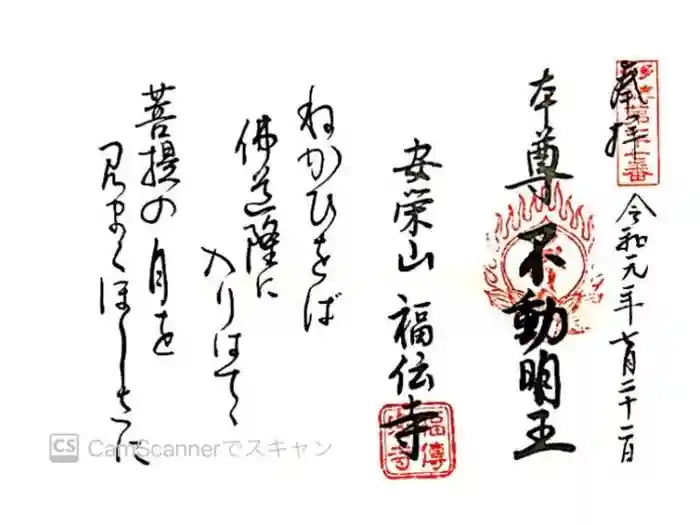 奉拝
令和元年七月二十二日
本尊 不動明王
安栄山 福伝寺
福傳寺
ねがひをば
佛道隆に
入りはてゝ
菩提の月を
見まくほしさに
CS CamScannerでスキャン